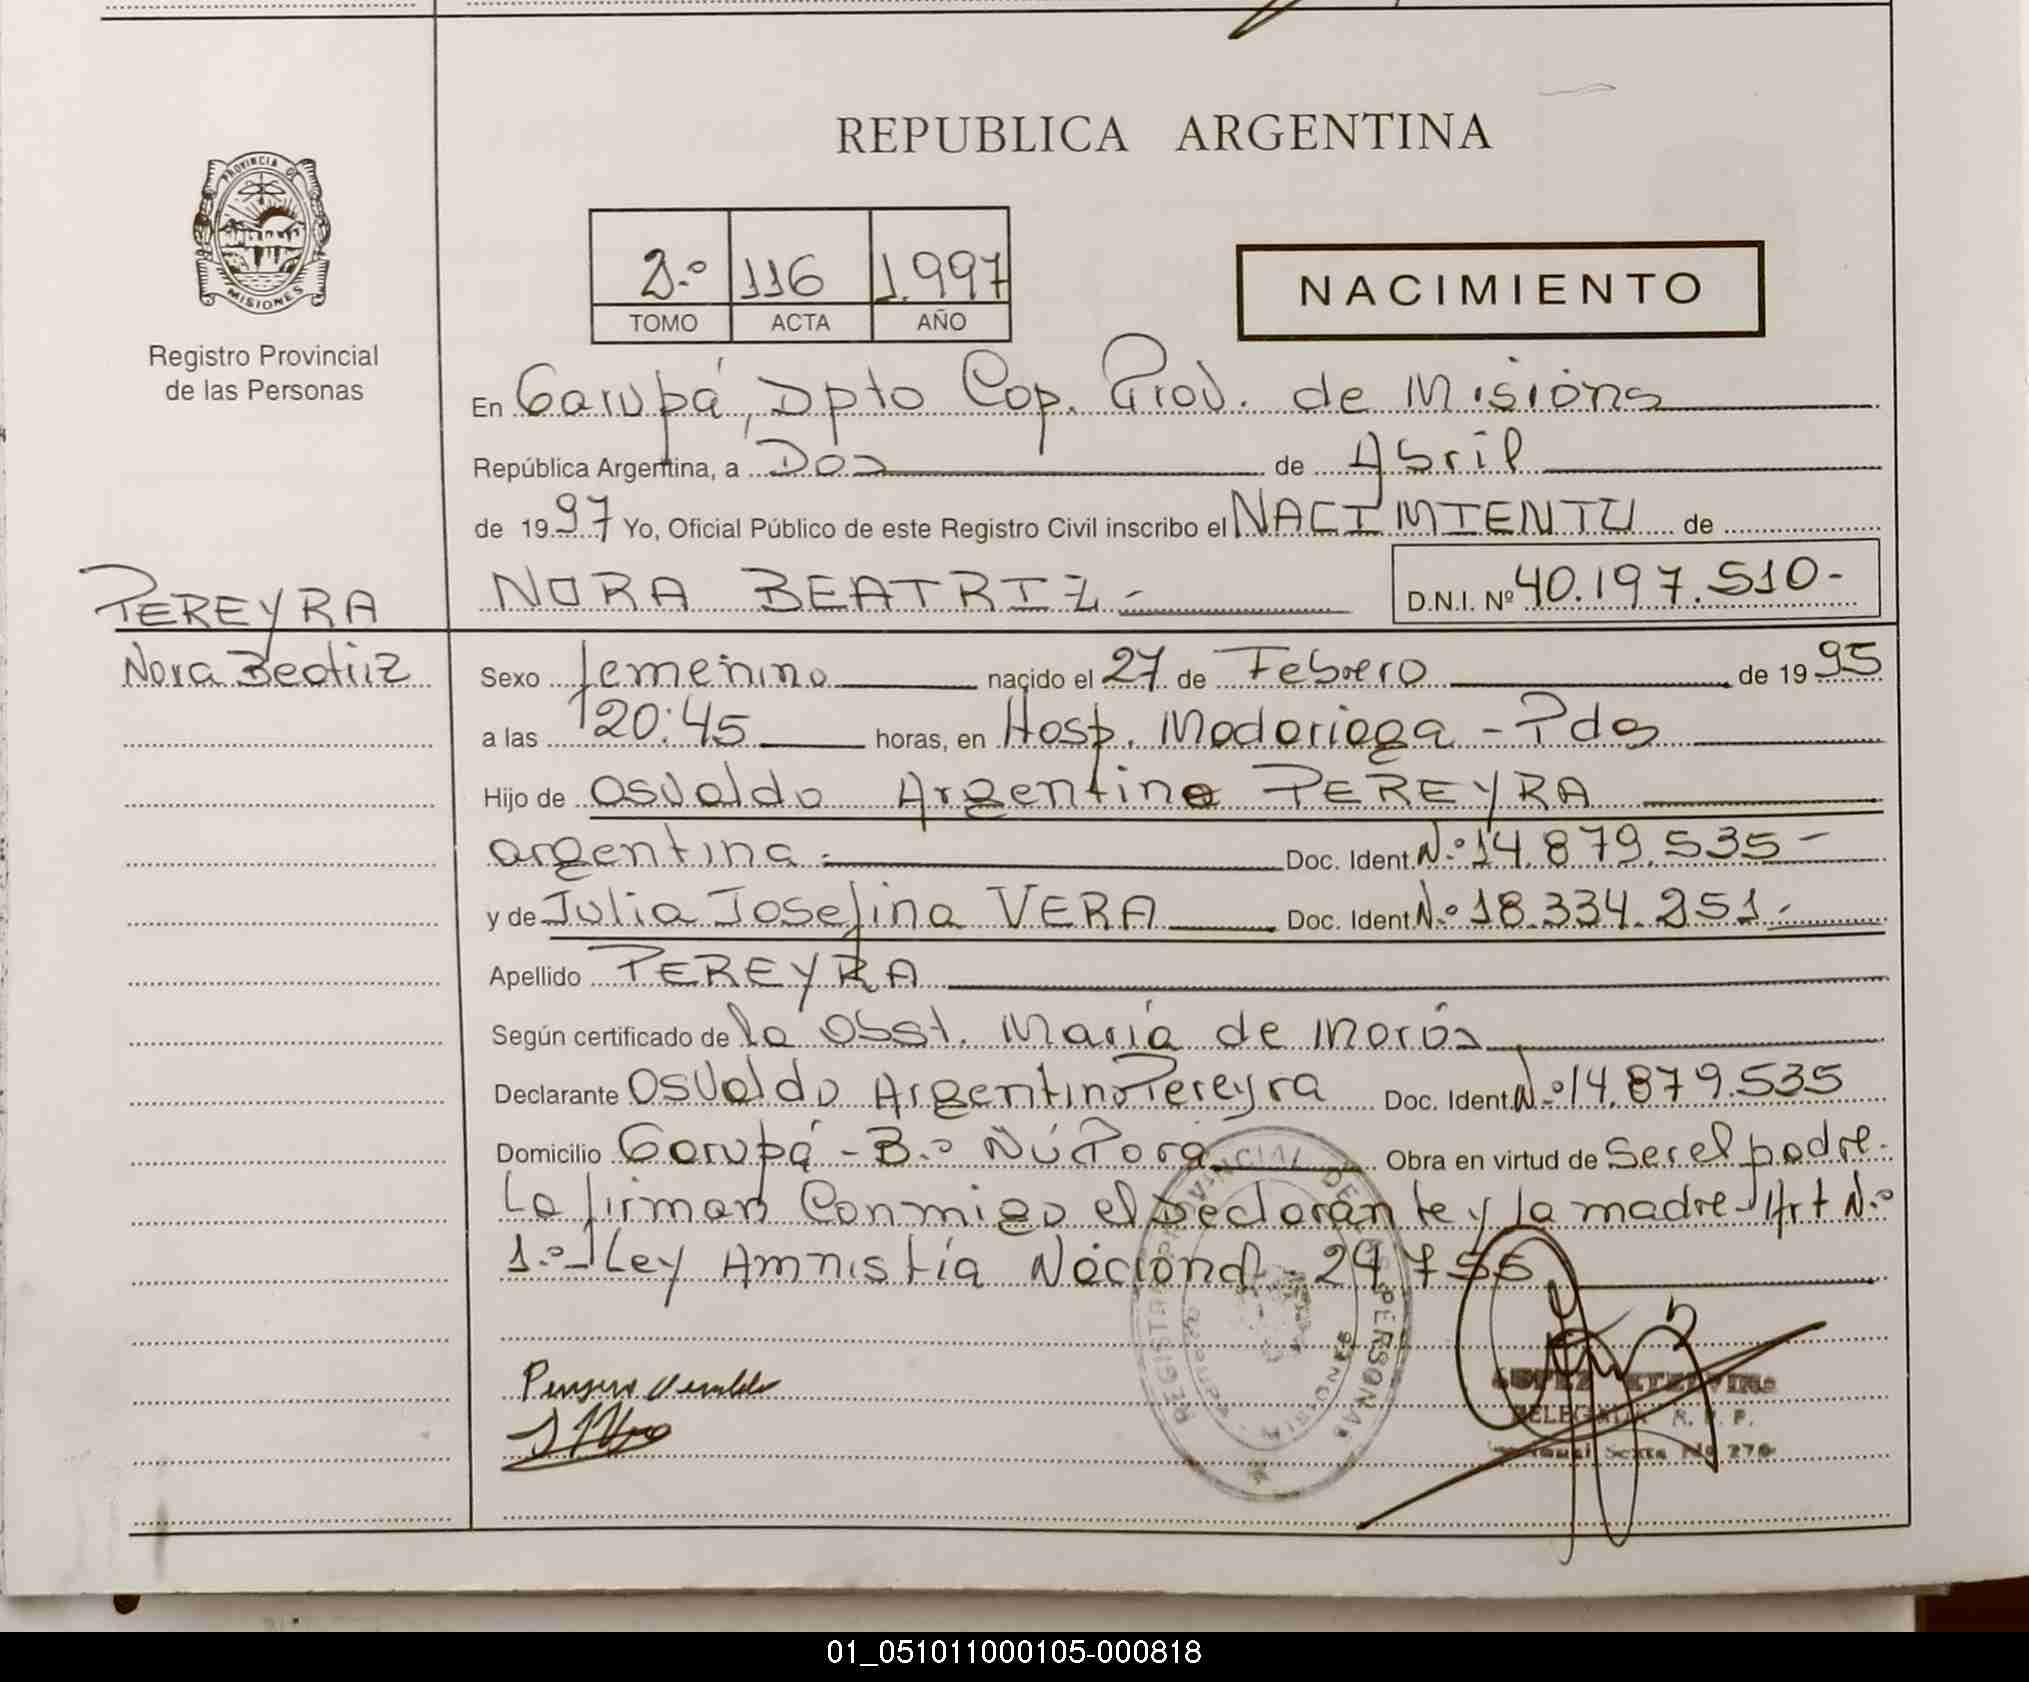 REPUBLICA ARGENTINA
PROVINCIA DE
MISIONES
Registro Provincial
de las Personas
2.º 116 1.997
TOMO ACTA AÑO
NACIMIENTO
En Garupá, Dpto Cap. Prov. de Misions
República Argentina, a Dos de Abril
de 1997 Yo, Oficial Público de este Registro Civil inscribo el NACIMIENTO de
PEREYRA
Nora Beatriz
NORA BEATRIZ.-
D.N.I. Nº 40.197.510-
Sexo femenino nacido el 27 de Febrero de 1995
a las 20:45 horas, en Hosp. Madariaga - Pdas
Hijo de Osvaldo Argentino PEREYRA
argentina.- Doc. Ident. N.º 14.879.535-
y de Julia Josefina VERA Doc. Ident. N.º 18.334.251.-
Apellido PEREYRA
Según certificado de la Obst. María de Morós
Declarante Osvaldo Argentino Pereyra Doc. Ident. N.º 14.879.535
Domicilio Garupá - B.º Ñú Porá Obra en virtud de Ser el padre.
La firman Conmigo el Declarante y la madre - Art N.º
1.º - Ley Amnistía Nacional - 24755
REGISTRO PROVINCIAL DE LAS PERSONAS
MISIONES
DELEGADA R. P. P.
01_051011000105-000818